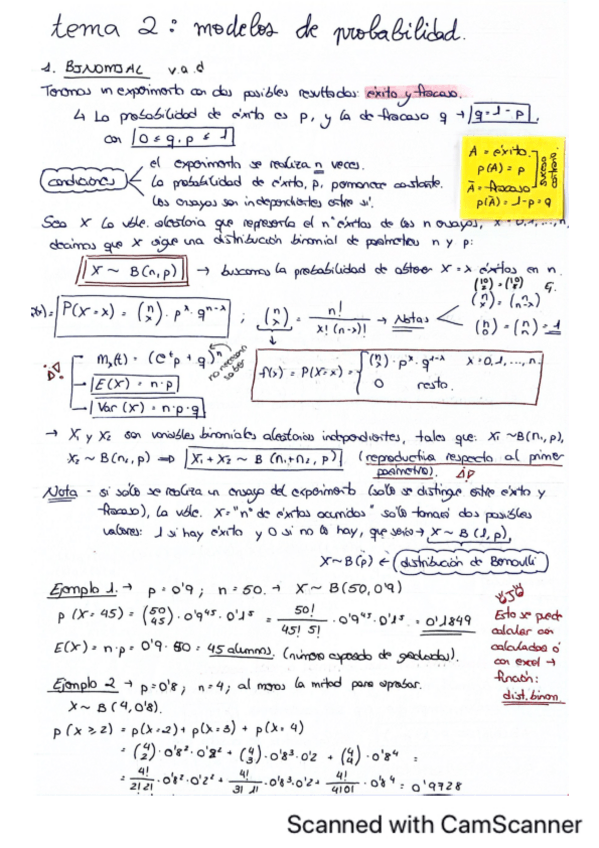 tema 2: modelos de probabilidad.
1. BINOMIAL v.a.d
Tenemos un experimento con dos posibles resultados: éxito y fracaso.
↳ La probabilidad de éxito es p, y la de fracaso q → q = 1 - p,
con 0 ≤ q, p ≤ 1
A = éxito.
p(A) = p
Ā = fracaso
p(Ā) = 1-p = q
suceso contrario.
condiciones
el experimento se realiza n veces.
la probabilidad de éxito, p, permanece constante.
los ensayos son independientes entre sí.
Sea X la vble. aleatoria que representa el nº éxitos de los n ensayos, X = 0, 1, ..., n,
decimos que X sigue una distribución binomial de parámetros n y p:
X ~ B(n, p) → buscamos la probabilidad de obtener X = x éxitos en n.
P(X = x) = (n x) · p^x · q^(n-x) ; (n x) = n! / x! (n-x)! → Notas
(n x) = (n n-x)
(n 0) = (n n) = 1
M_x(t) = (e^t p + q)^n
E(X) = n·p
Var (X) = n·p·q
f(x) = P(X=x) = (n x) · p^x · q^(1-x) x = 0, 1, ..., n.
0 resto.
→ X1 y X2 son variables binomiales aleatorias independientes, tales que: X1 ~ B(n1, p),
X2 ~ B(n2, p) ⇒ X1 + X2 ~ B (n1+n2, p) (reproductiva respecto al primer
parámetro).
Nota - si sólo se realiza un ensayo del experimento (solo se distingue entre éxito y
fracaso), la vble. X = "nº de éxitos ocurridos" sólo tomará dos posibles
valores: 1 si hay éxito y 0 si no lo hay, que sería → X ~ B (1, p),
X ~ B(p) ← distribución de Bernoulli
Ejemplo 1. → p = 0'9 ; n = 50. → X ~ B(50, 0'9)
p (X = 45) = (50 45) · 0'9^45 · 0'1^5 = 50! / 45! 5! · 0'9^45 · 0'1^5 = 0'1849
E(X) = n·p = 0'9 · 50 = 45 alumnos. (número esperado de graduados).
Esto se puede
calcular con
calculadora ó
con excel →
función:
dist.binom.
Ejemplo 2 → p = 0'8 ; n = 4 ; al menos la mitad para aprobar.
X ~ B (4, 0'8).
p (X ≥ 2) = p(X = 2) + p(X = 3) + p(X = 4)
= (4 2) · 0'8² · 0'2² + (4 3) · 0'8³ · 0'2 + (4 4) · 0'8⁴ =
= 4! / 2! 2! · 0'8² · 0'2² + 4! / 3! 1! · 0'8³ · 0'2 + 4! / 4! 0! · 0'8⁴ = 0'9728
Scanned with CamScanner